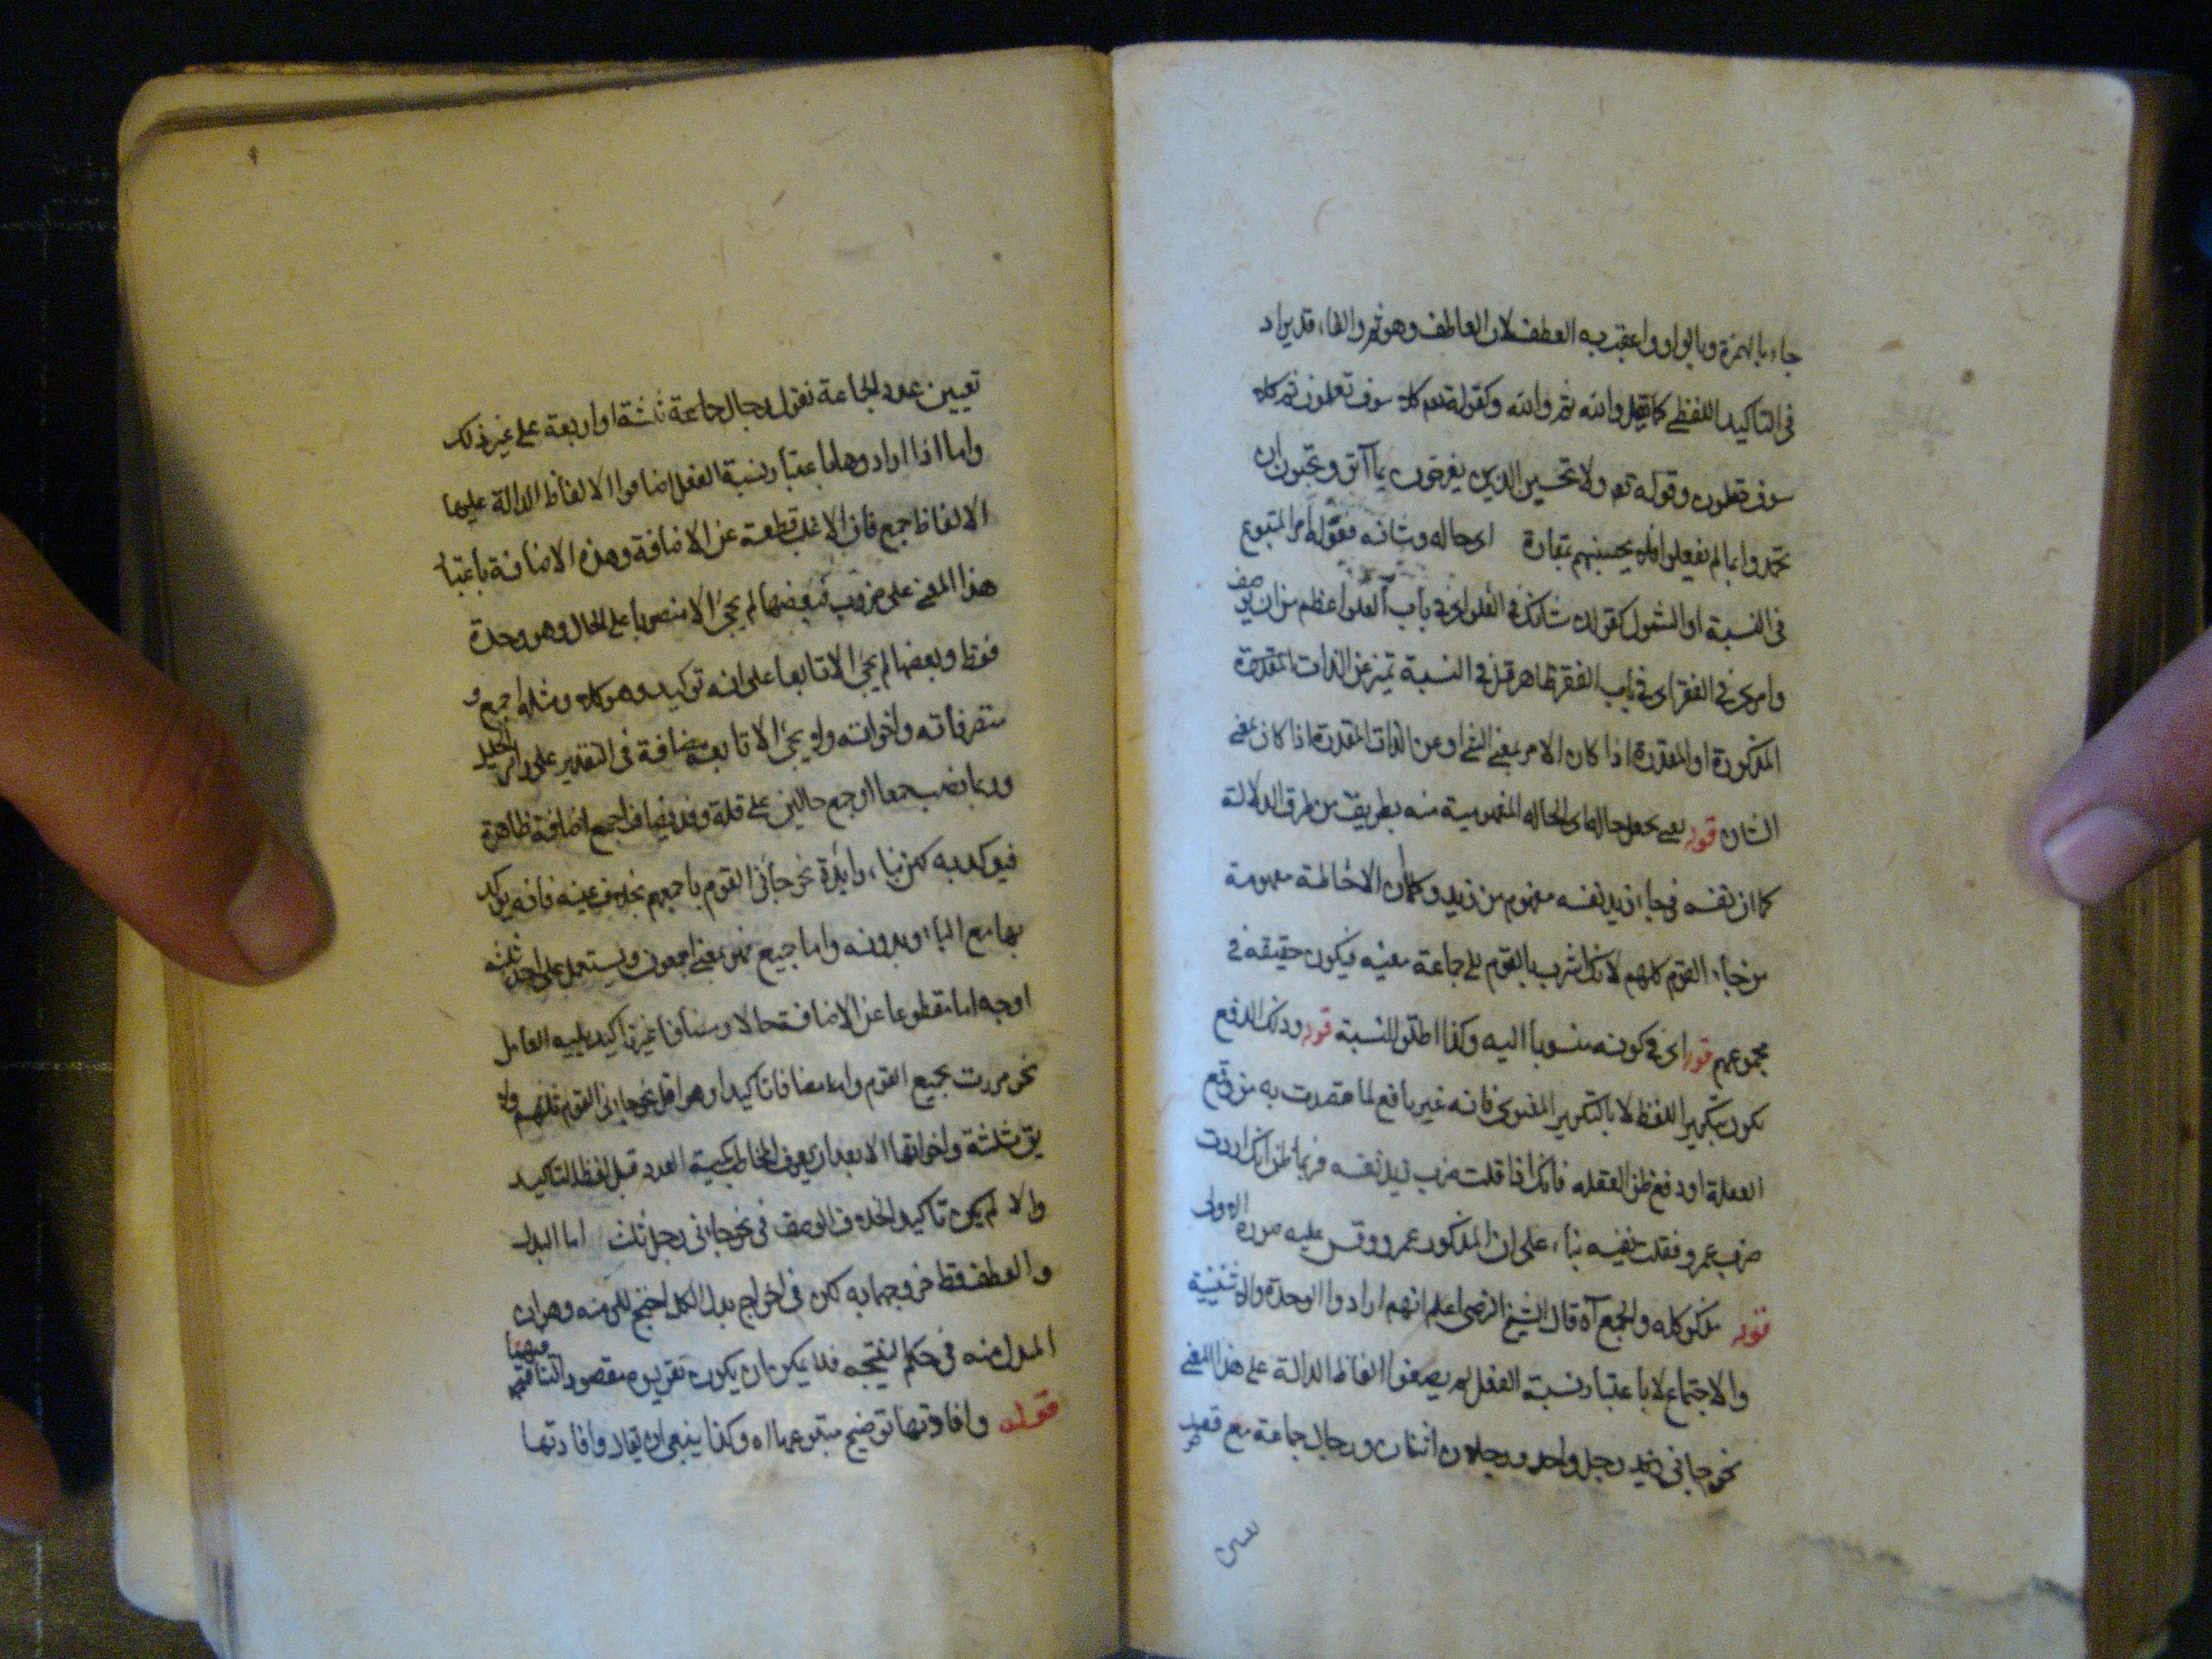 جاء بالهمزة وبالواو واعقب به العطف لان العاطف وهو ثم والفاء قد يراد
فى التاكيد اللفظى كما والله ثم والله وكقوله تعم كلا سوف تعلمون ثم كلا
سوف تعلمون وقوله تعم ولا تحسبن الذين يفرحون بما آتو ويحبون ان
يحمدوا بما لم يفعلوا فلا يحسبنهم بمفازة اى حاله وشانه فقوله امر المتبوع
فى النسبة او الشمول كقولك شانك فى العلو اى فى باب العلو اعظم من ان يوصف
وامرى فى الفقر اى فى باب الفقر ظاهر فى النسبة تميز عن الذات المقدرة
المذكورة او المقدرة اذا كان الامر بمعنى الشئ او عن الذات المقدرة اذا كان بمعنى
الشان قوله يعنى يجعل حاله اى الحاله المفهومية منه بطريق من طرق الدلالة
كما ان نفسه فى جاء زيد نفسه مفهوم من زيد وكان الاحاطة مفهومة
من جاء القوم كلهم لانك اشرت بالقوم الى جماعة معينه فيكون حقيقه فى
مجموعهم قوله اى فى كونه منسوبا اليه وكذا اطلق النسبة قوله وذلك الدفع
يكون بتكرير اللفظ لا بالتكرير المعنوى فانه غير نافع لما قصدت به من وقع
الغفلة او دفع ظن الغفله فانك اذا قلت ضرب زيد نفسه فربما ظن انك اردت
ضرب عمرو فقلت نفسه بناء على ان المذكور عمرو وقس عليه صورة الاولى
قوله بذكر كله واجمع آه قال الشيخ الرضى اعلم انهم ارادوا الوحدة والاثنينية
والاجتماع لا باعتبار نسبة الفعل لم يضعوا الفاظ الدالة على هذا المعنى
نحو جاءنى زيد رجل واحد ورجلان اثنان ورجال جماعة مع قصد
تعيين
تعيين عدد الجماعة نقول رجال جماعة ثلثة او اربعة على غير ذلك
واما اذا ارادوها باعتبار نسبة الفعل اضافوا الالفاظ الدالة عليها
الالفاظ جميع فان الاغلب قطعه عن الاضافة وهذه الاضافة باعتبار
هذا المعنى على ضروب فبعضها لم يجئ الا منصوبا على الحال وهو وحدة
فقط وبعضها لم يجئ الا تابعا على انه توكيد وهو كلا ومثله اجمع و
متصرفاته واخواته ولا يجئ الا تابعة مضافة فى التقدير على راى الخليل
وربما نصب جمعا اوجمع حالين على قلة وقد يضاف اجمع اضافة ظاهرة
فيوكد به كمن بباء زايدة نحو جاءنى القوم باجمعهم بخلاف عينه فانه يوكد
بها مع الباء وبدونه واما جميع فهو بمعنى اجمعون ويستعمل على احد ثلثه
اوجه اما مقطوعا عن الاضافة حالا ومضافا غير تاكيد يليه العامل
نحو مررت بجميع القوم واما مضافا تاكيدا وهو اقل نحو جاءنى القوم ثلثهم ولا
يق ثلثة واخواتها الا بعد ان يعرف المخاطب كمية العدد قبل لفظ التاكيد
والا لم يكن تاكيدا بخلاف الوصف فى نحو جاءنى رجل ثلث اما البدل
والعطف فقط خروجهما به لكن فى اخراج بدل الكل احتيج لكونه وهو ان
المبدل منه فى حكم التنحية فلا يمكن ان يكون تقريره مقصودا
قوله وافادتها توضيح متبوعها اه وكذا ينبغى ان يقال وافادتها